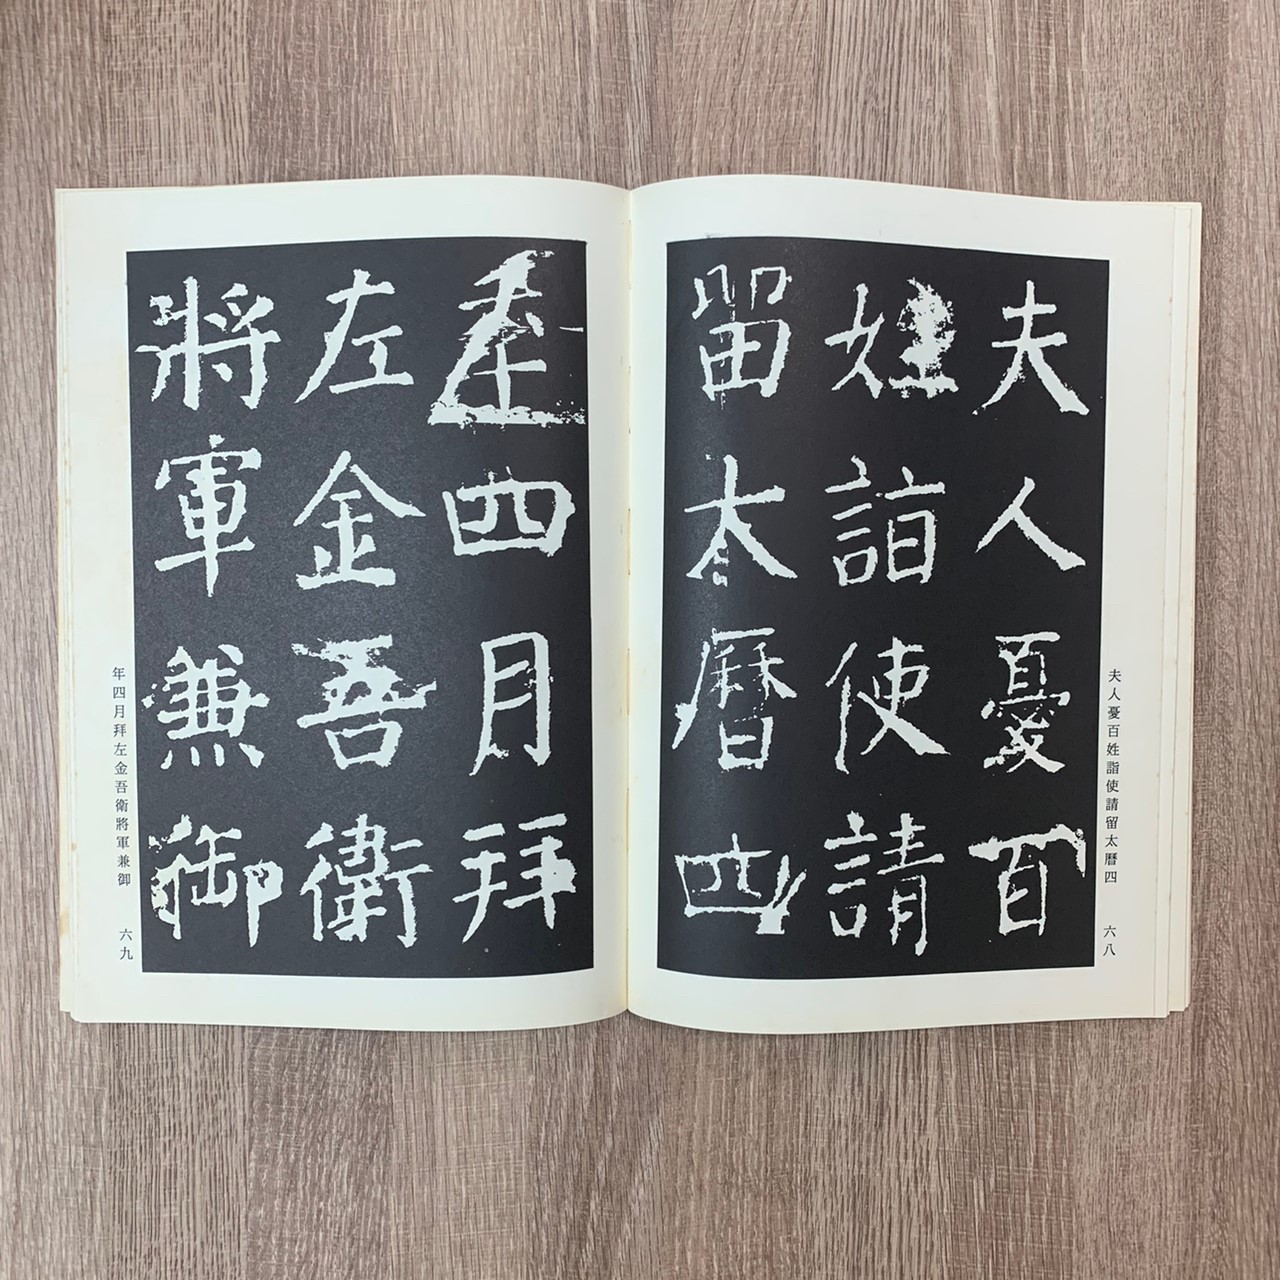 夫人憂百
姓詣使請
留太曆四
夫人憂百姓詣使請留太曆四
六八
年四月拜
左金吾衛
將軍兼御
年四月拜左金吾衛將軍兼御
六九